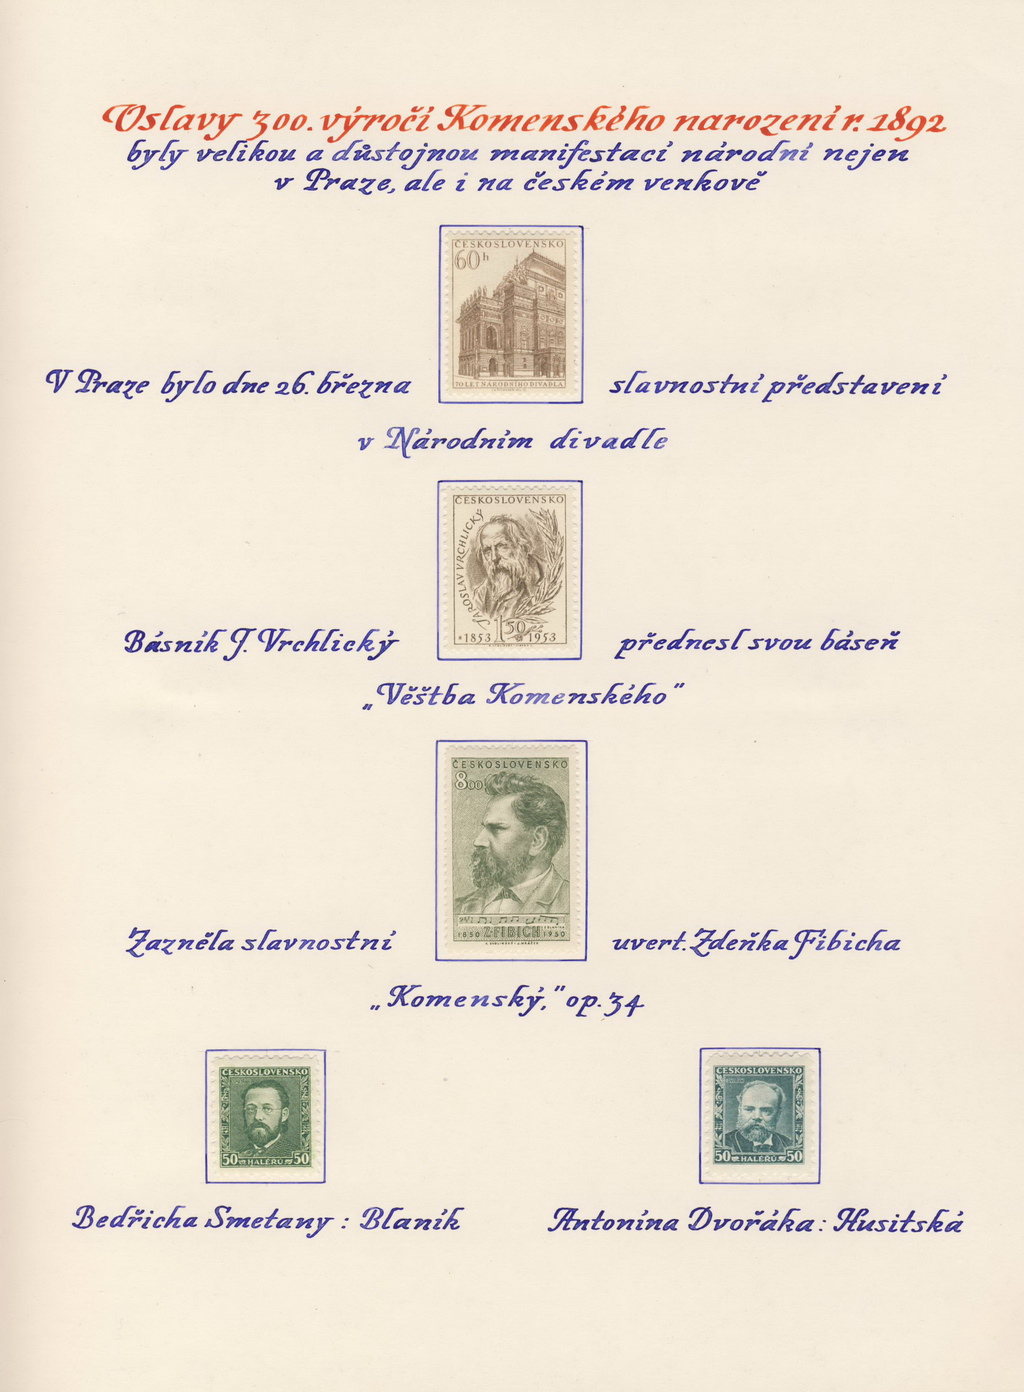 Oslavy 300. výročí Komenského narození r. 1892
byly velikou a důstojnou manifestací národní nejen
v Praze, ale i na českém venkově
ČESKOSLOVENSKO
60 h
70 LET NÁRODNÍHO DIVADLA
V Praze bylo dne 26. března slavnostní představení
v Národním divadle
ČESKOSLOVENSKO
JAROSLAV VRCHLICKÝ
1 50
*1853 1953
Básník J. Vrchlický přednesl svou báseň
„Věštba Komenského"
ČESKOSLOVENSKO
800
1850 Z. FIBICH 1950
Zazněla slavnostní uvert. Zdeňka Fibicha
„Komenský," op. 34
ČESKOSLOVENSKO
50 HALÉŘŮ 50
ČESKOSLOVENSKO
50 HALÉŘŮ 50
Bedřicha Smetany : Blaník
Antonína Dvořáka : Husitská